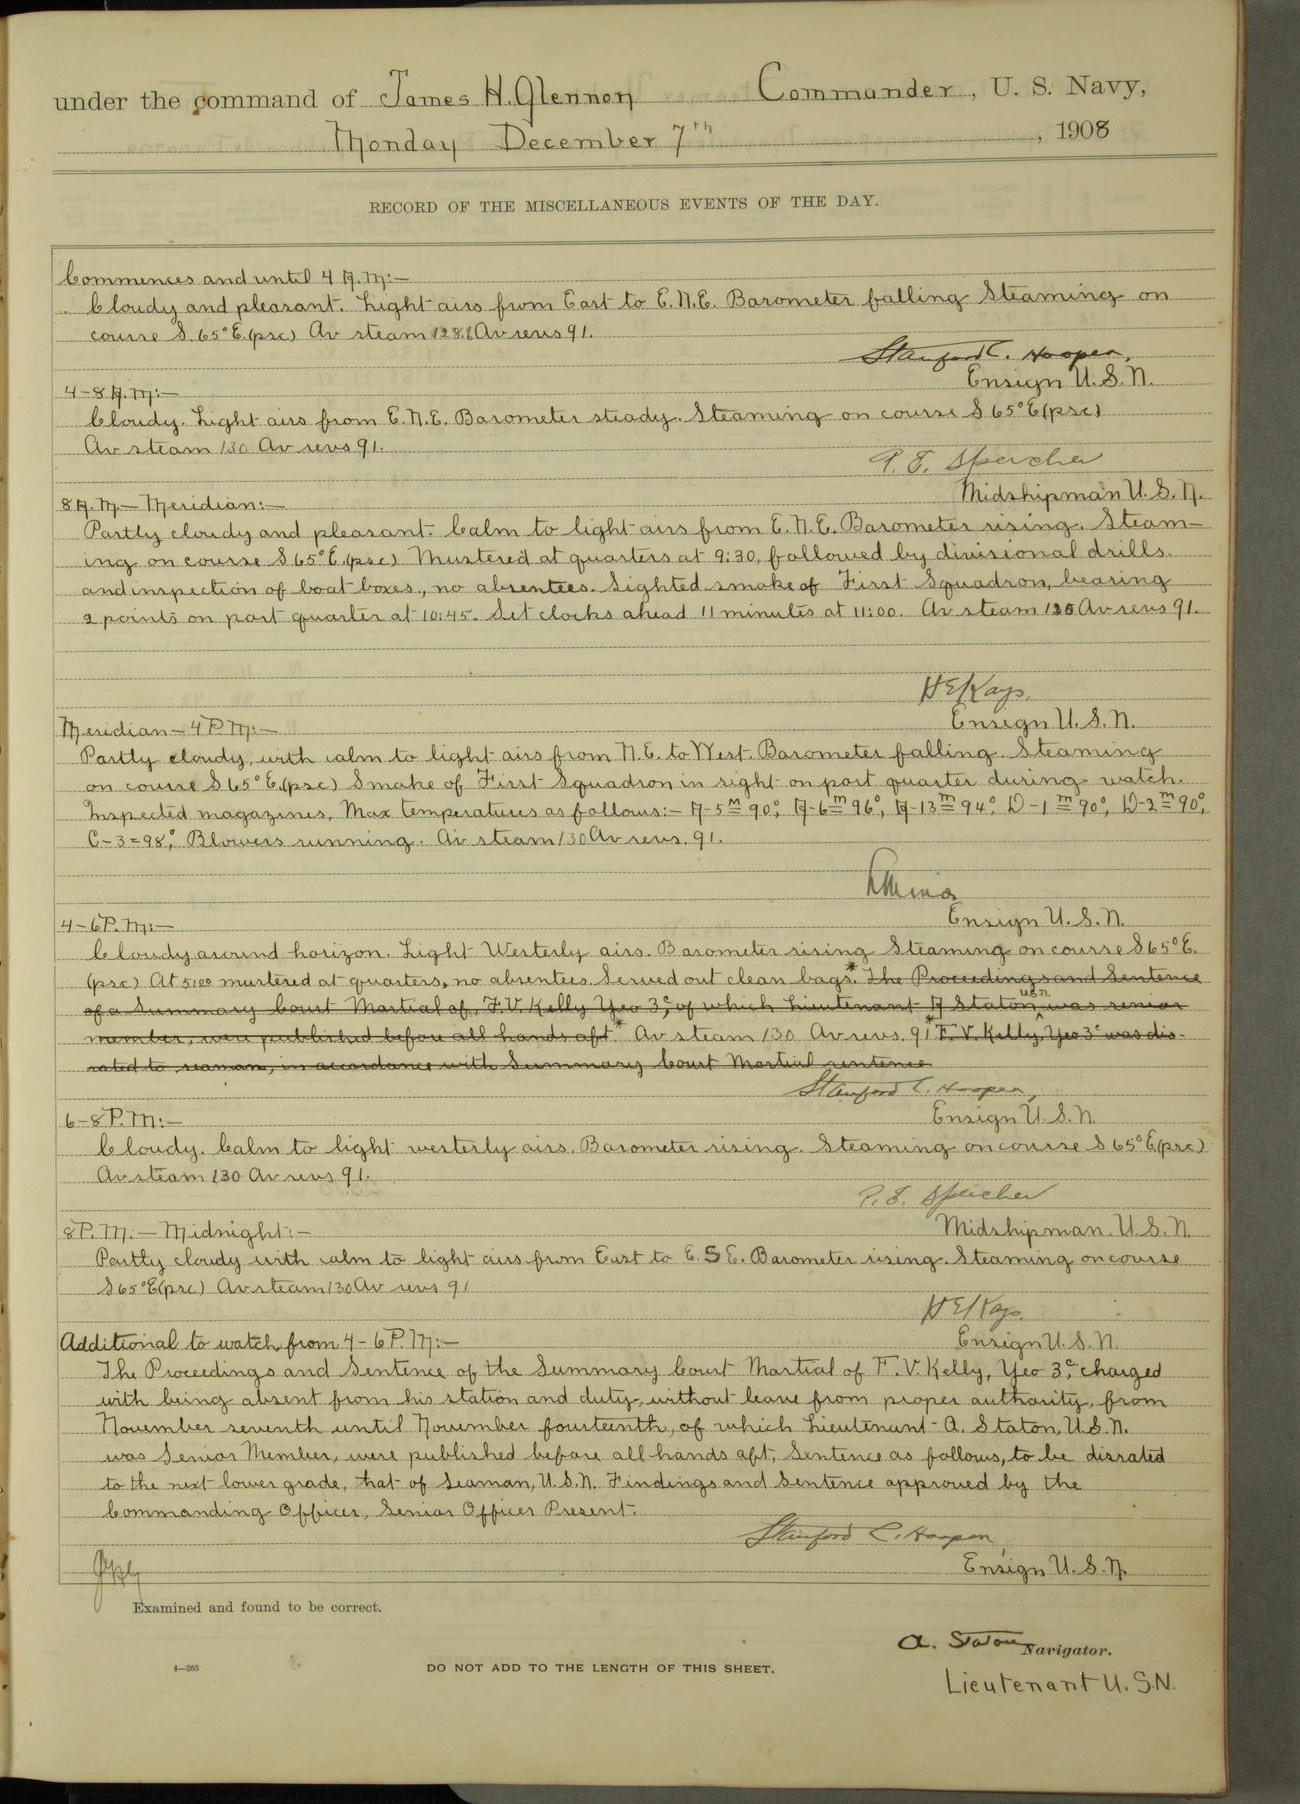 under the command of James H. Glennon Commander, U. S. Navy,
Monday December 7th, 1908
RECORD OF THE MISCELLANEOUS EVENTS OF THE DAY.
Commences and until 4 A.M:—
Cloudy and pleasant. Light airs from East to E.N.E. Barometer falling Steaming on
course S. 65° E.(psc) Av steam 128.6 Av revs 91.
Stanford C. Hooper,
Ensign U.S.N.
4-8 A.M:—
Cloudy. Light airs from E.N.E. Barometer steady. Steaming on course S 65° E(psc)
Av steam 130 Av revs 91.
P. E. Speicher
Midshipman U.S.N.
8 A.M— Meridian:—
Partly cloudy and pleasant. Calm to light airs from E.N.E. Barometer rising. Steam-
ing on course S 65° E.(psc) Mustered at quarters at 9:30, followed by divisional drills.
and inspection of boat boxes., no absentees. Sighted smoke of First Squadron, bearing
2 points on port quarter at 10:45. Set clocks ahead 11 minutes at 11:00. Av steam 130 Av revs 91.
H E Kays.
Ensign U.S.N.
Meridian — 4 P.M:—
Partly cloudy, with calm to light airs from N.E. to West. Barometer falling. Steaming
on course S 65° E.(psc) Smoke of First Squadron in sight on port quarter during watch.
Inspected magazines, Max temperatures as follows:— A-5 M = 90°, A-6 m = 96°, A-13 m = 94°. D-1 m = 90°, D-2 m = 90°,
C-3 = 98°, Blowers running. Av steam 130 Av revs. 91.
Ensign U.S.N.
4-6 P.M:—
Cloudy around horizon. Light Westerly airs. Barometer rising Steaming on course S 65° E.
(psc) At 5:00 mustered at quarters, no absentees. Served out clean bags.* The Proceedings and Sentence
of a Summary Court Martial of, F.V. Kelly Yeo 3c, of which Lieutenant A Staton, U.S.N. was senior
member, were published before all hands aft.* Av steam 130 Av revs. 91 * F. V. Kelly, Yeo 3c was dis-
rated to seaman, in accordance with Summary Court Martial sentence
Stanford C. Hooper,
Ensign U.S.N.
6-8 P.M:—
Cloudy. Calm to light westerly airs. Barometer rising. Steaming on course S 65° E(psc)
Av steam 130 Av revs 91.
P. E. Speicher
Midshipman. U.S.N.
8 P.M.— Midnight:—
Partly cloudy with calm to light airs from East to E. S E. Barometer rising. Steaming on course
S 65° E(psc) Av steam 130 Av revs 91
H E Kays.
Ensign U.S.N.
Additional to watch from 4-6 P.M:—
The Proceedings and Sentence of the Summary Court Martial of F. V. Kelly, Yeo 3c, charged
with being absent from his station and duty, without leave from proper authority, from
November seventh until November fourteenth, of which Lieutenant A. Staton, U.S.N.
was Senior Member, were published before all hands aft; Sentence as follows, to be disrated
to the next lower grade, that of Seaman, U.S.N. Findings and Sentence approved by the
Commanding Officer, Senior Officer Present.
Stanford C. Hooper,
Ensign U.S.N.
Examined and found to be correct.
A. Staton Navigator.
4—265 DO NOT ADD TO THE LENGTH OF THIS SHEET.
Lieutenant U.S.N.